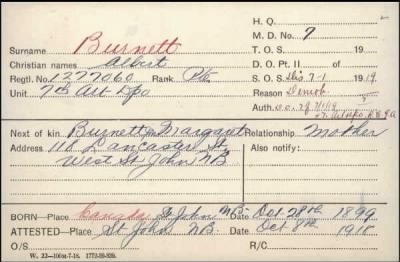 H. Q.
Surname Burnett M. D. No. 7
Christian names Albert T. O. S. 19
Regtl. No. 1277060 Rank Pte. D. O. Pt. II of
S. O. S. Dis. 7-1 1919
Unit 7th Art Dpo Reason Demob.
Auth. D.O. 7/1/19
Next of kin Burnett Margaret Relationship Mother
Address 118 Lancaster St Also notify:
West St John NB
BORN—Place Canada St John N.B. Date Oct. 28th 1899
ATTESTED—Place St John NB. Date Oct 8th 1918
O/S R/C
W. 22—100M-7-18. 1772-39-839.